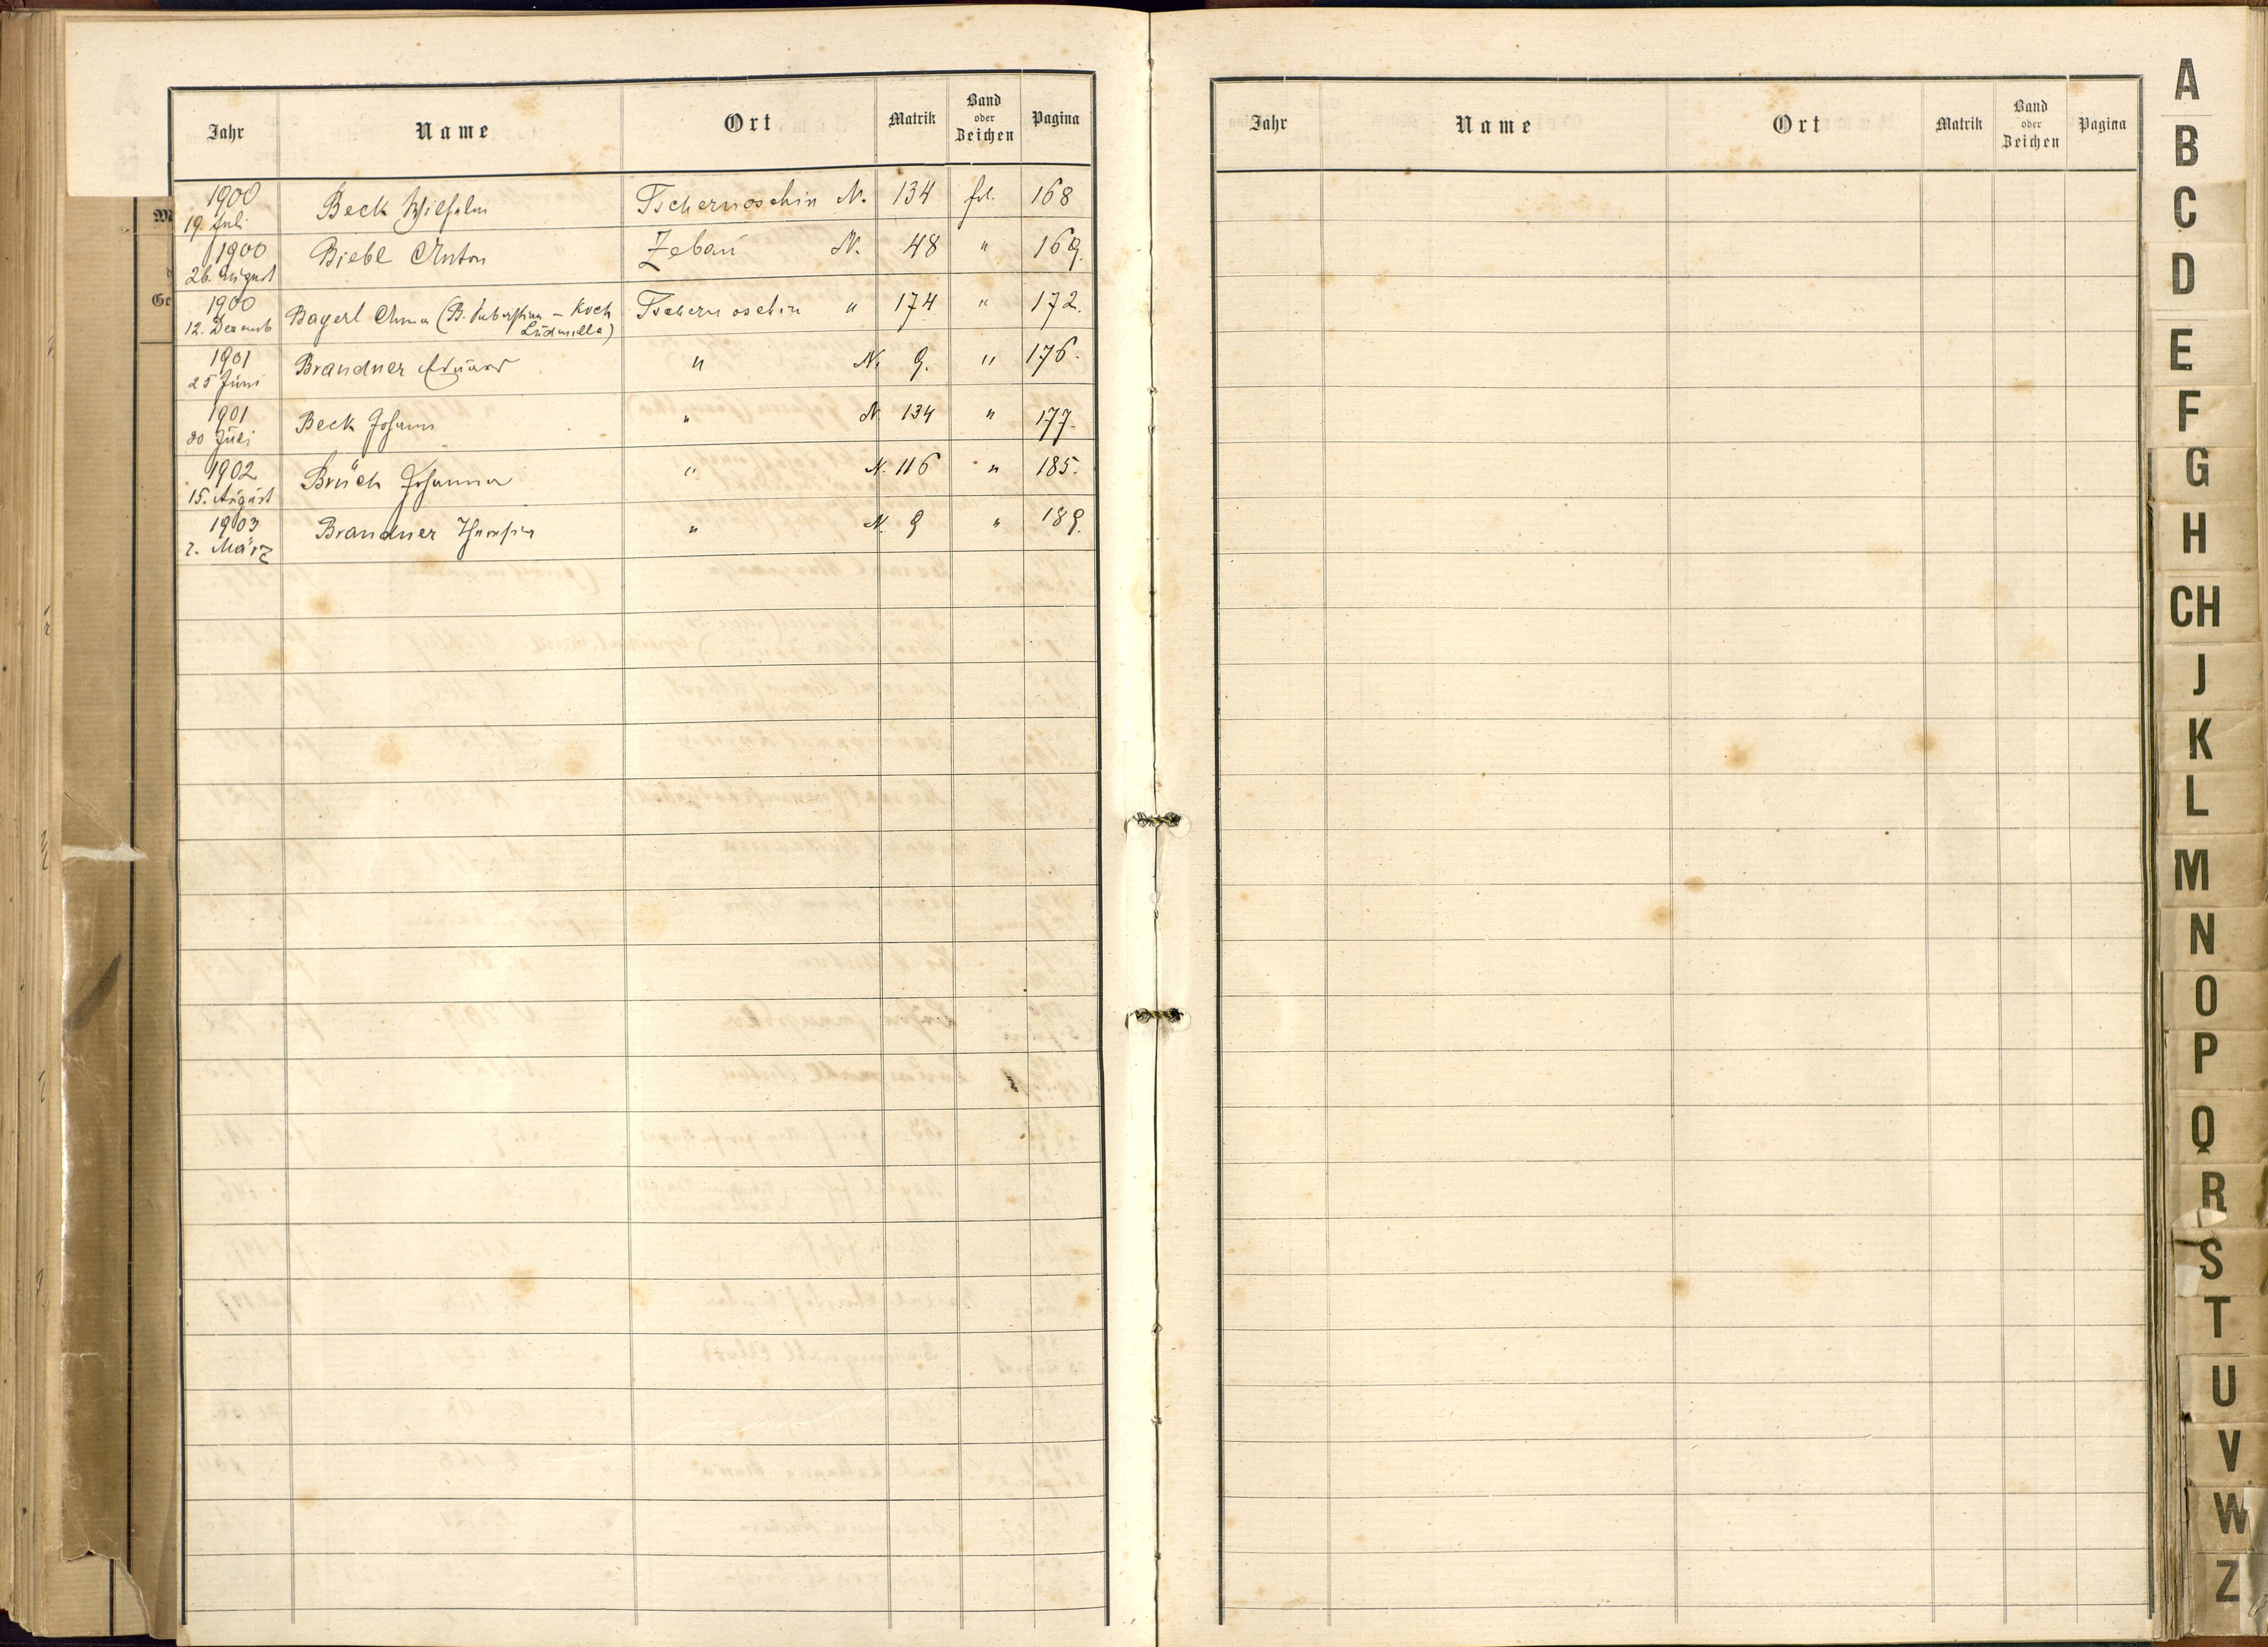 Jahr Name Ort Matrik Band oder Zeichen Pagina
1900 19. Juli Beck Wilhelm Tschernoschin N. 134 fol. 168
1900 26. August Biebl Anton Zebau N. 48 " 169.
1900 12. Dezemb Bayerl Anna (B. – Koch Ludmilla) Tschernoschin " 174 " 172.
1901 25 Juni Brandner Eduard " N. 9. " 176.
1901 30 Juli Beck Johann " N 134 " 177.
1902 15. August Brüch Johanna " N. 116 " 185.
1903 2. März Brandner Theresia " N. 9 " 189.
Jahr Name Ort Matrik Band oder Zeichen Pagina
A
B
C
D
E
F
G
H
CH
J
K
L
M
N
O
P
Q
R
S
T
U
V
W
Z